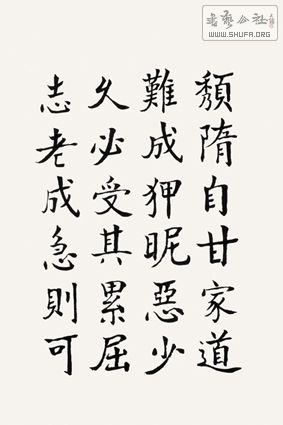 頹隋自甘家道
難成狎昵惡少
久必受其累屈
志老成急則可
書藝公社
WWW.SHUFA.ORG